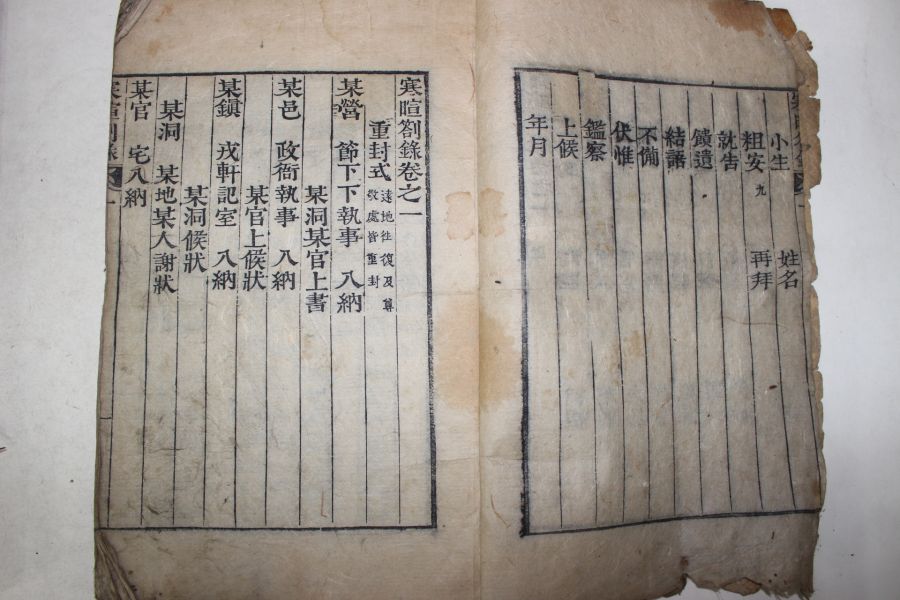 小生 姓名
粗安 九 再拜
就告
饋遺
結語
不備
伏惟
鑑察
上候
年月
寒暄劄錄卷之一
重封式 遠地往復及尊
敬處皆重封
某營 節下下執事 入納
某洞某官上書
某邑 政衙執事 入納
某官上候狀
某鎭 戎軒記室 入納
某洞候狀
某洞 某地某人謝狀
某官 宅入納
寒暄劄錄 一